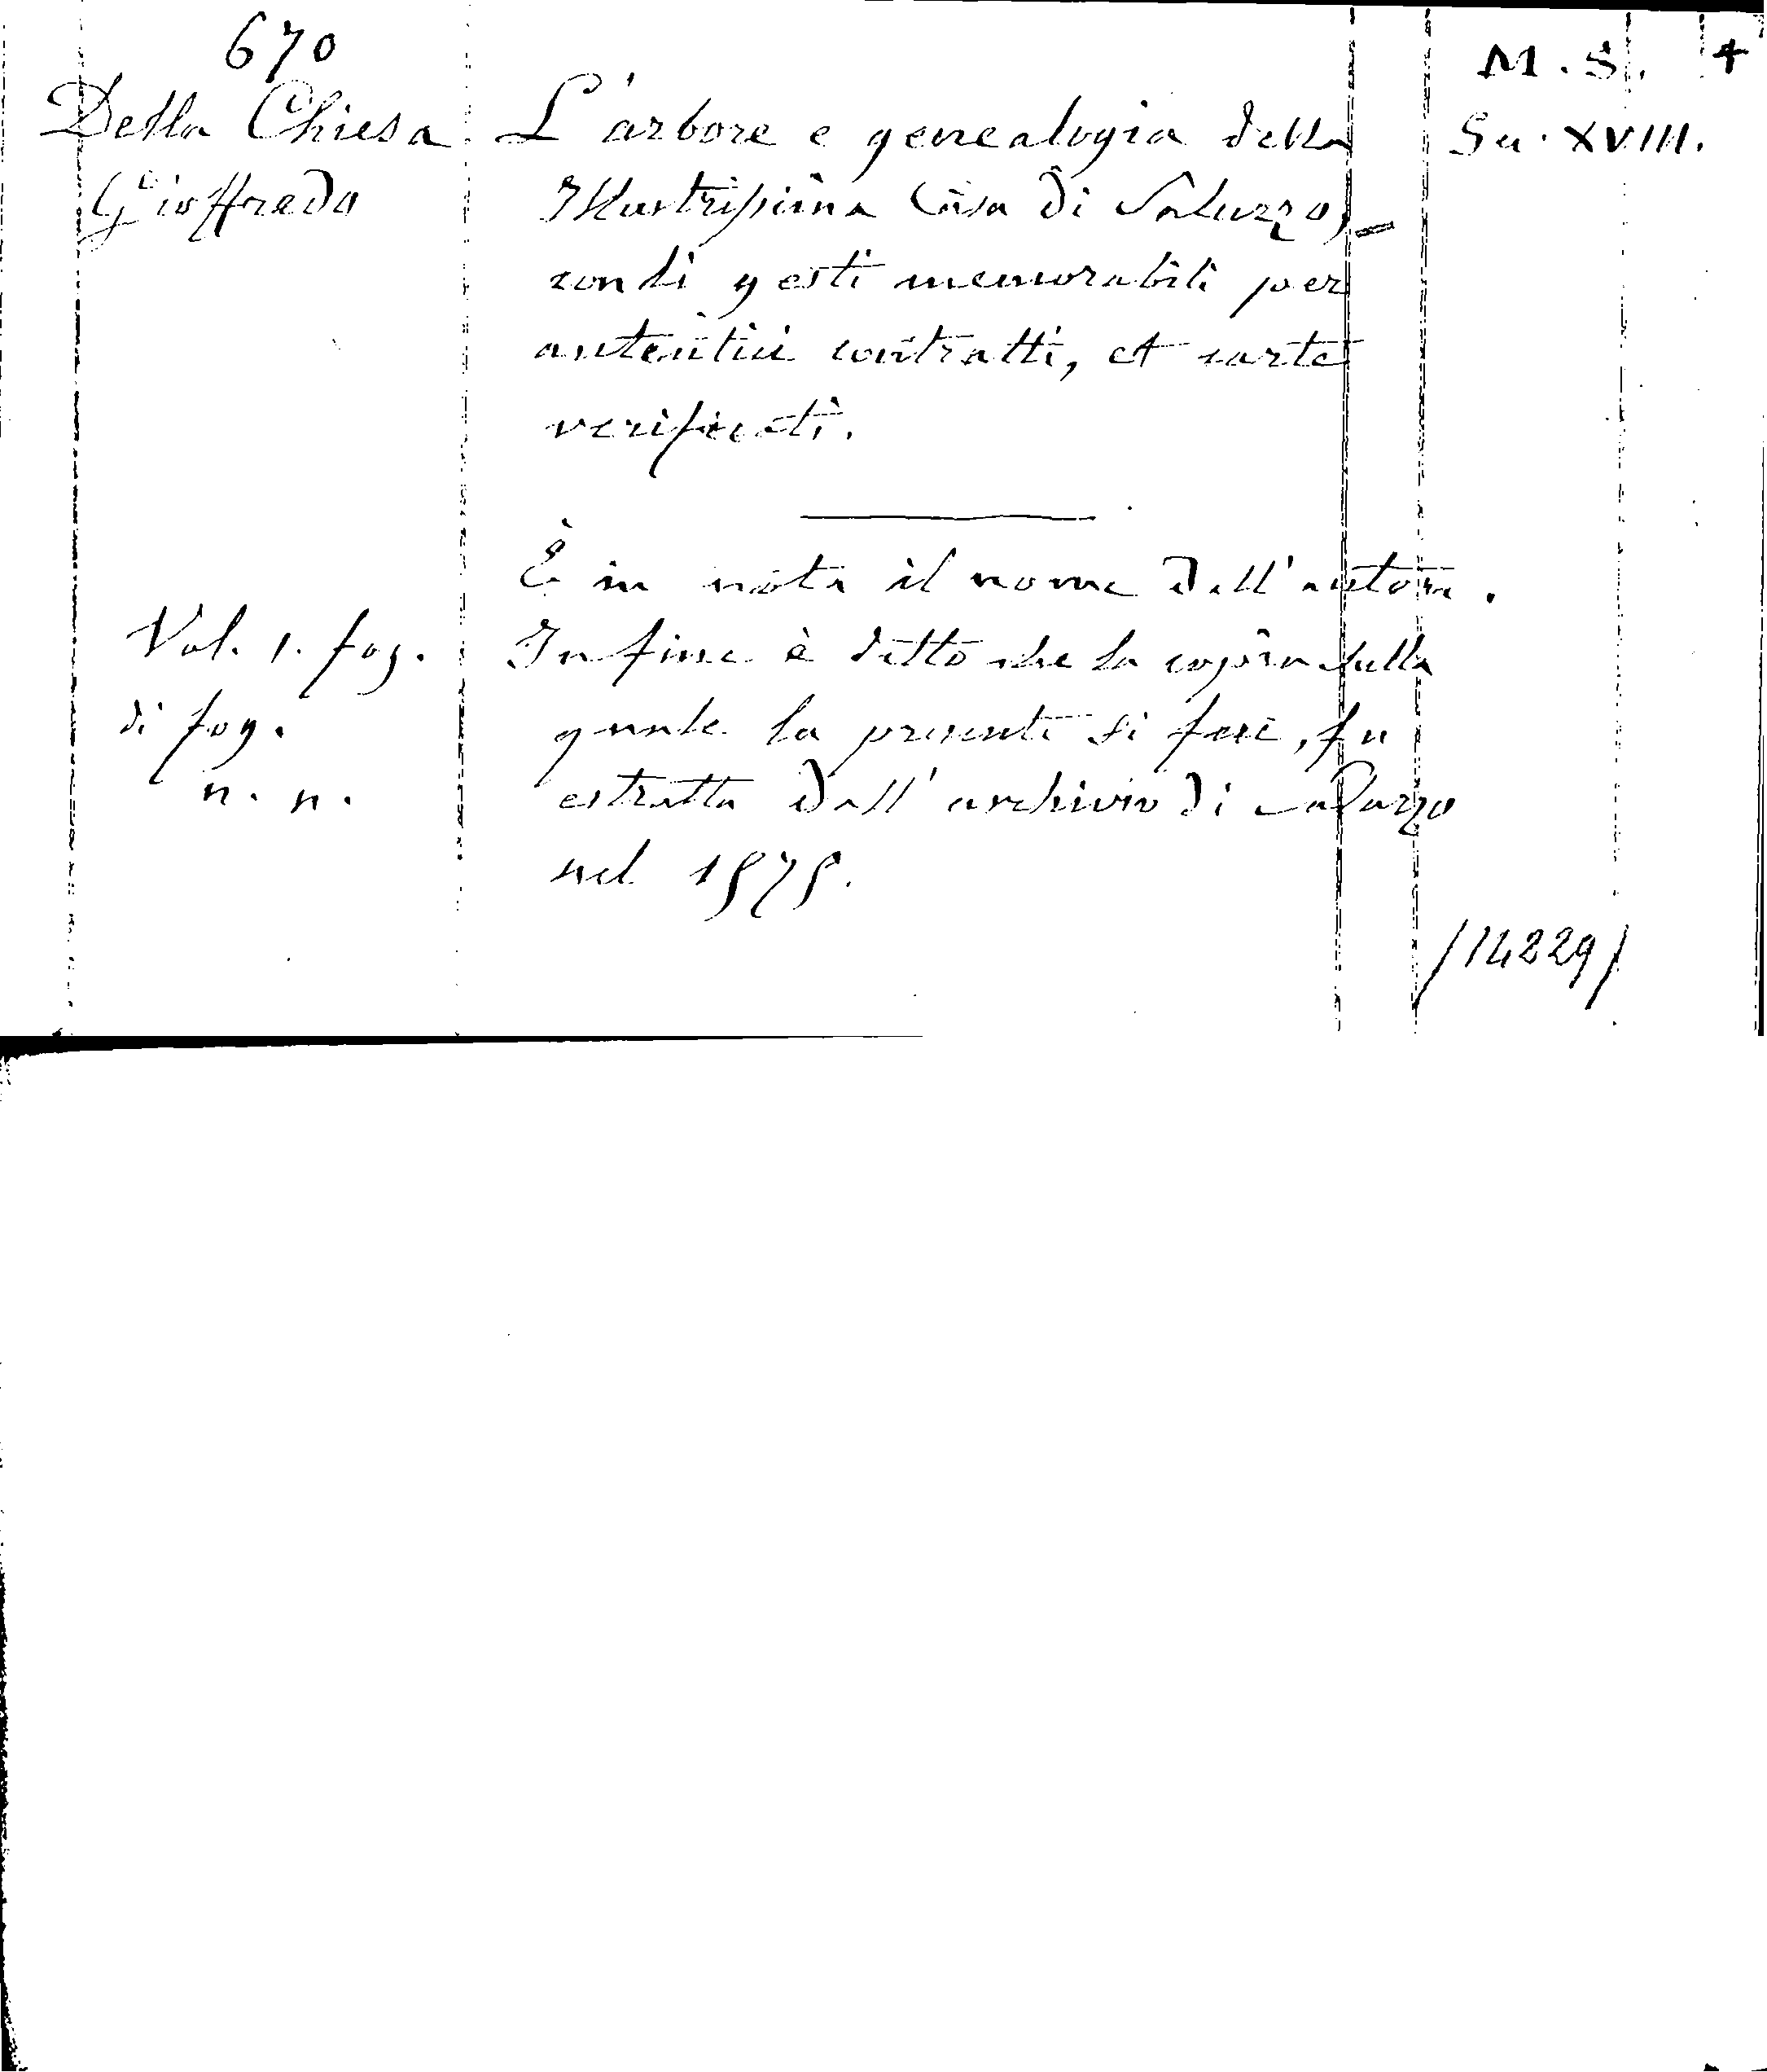 670
M. S. 4
Della Chiesa
Gioffredo
L'arbore e genealogia della
Illustrissima Casa di Saluzzo,
con li gesti memorabili per
autentici contratti, et carte
verificati.
Sec. XVIII.
È in nota il nome dell'autore.
Vol. 1. fog.
di fog.
n. n.
In fine è detto che la copia sulla
quale la presente si fece, fu
estratta dall'archivio di Saluzzo
nel
/14229/